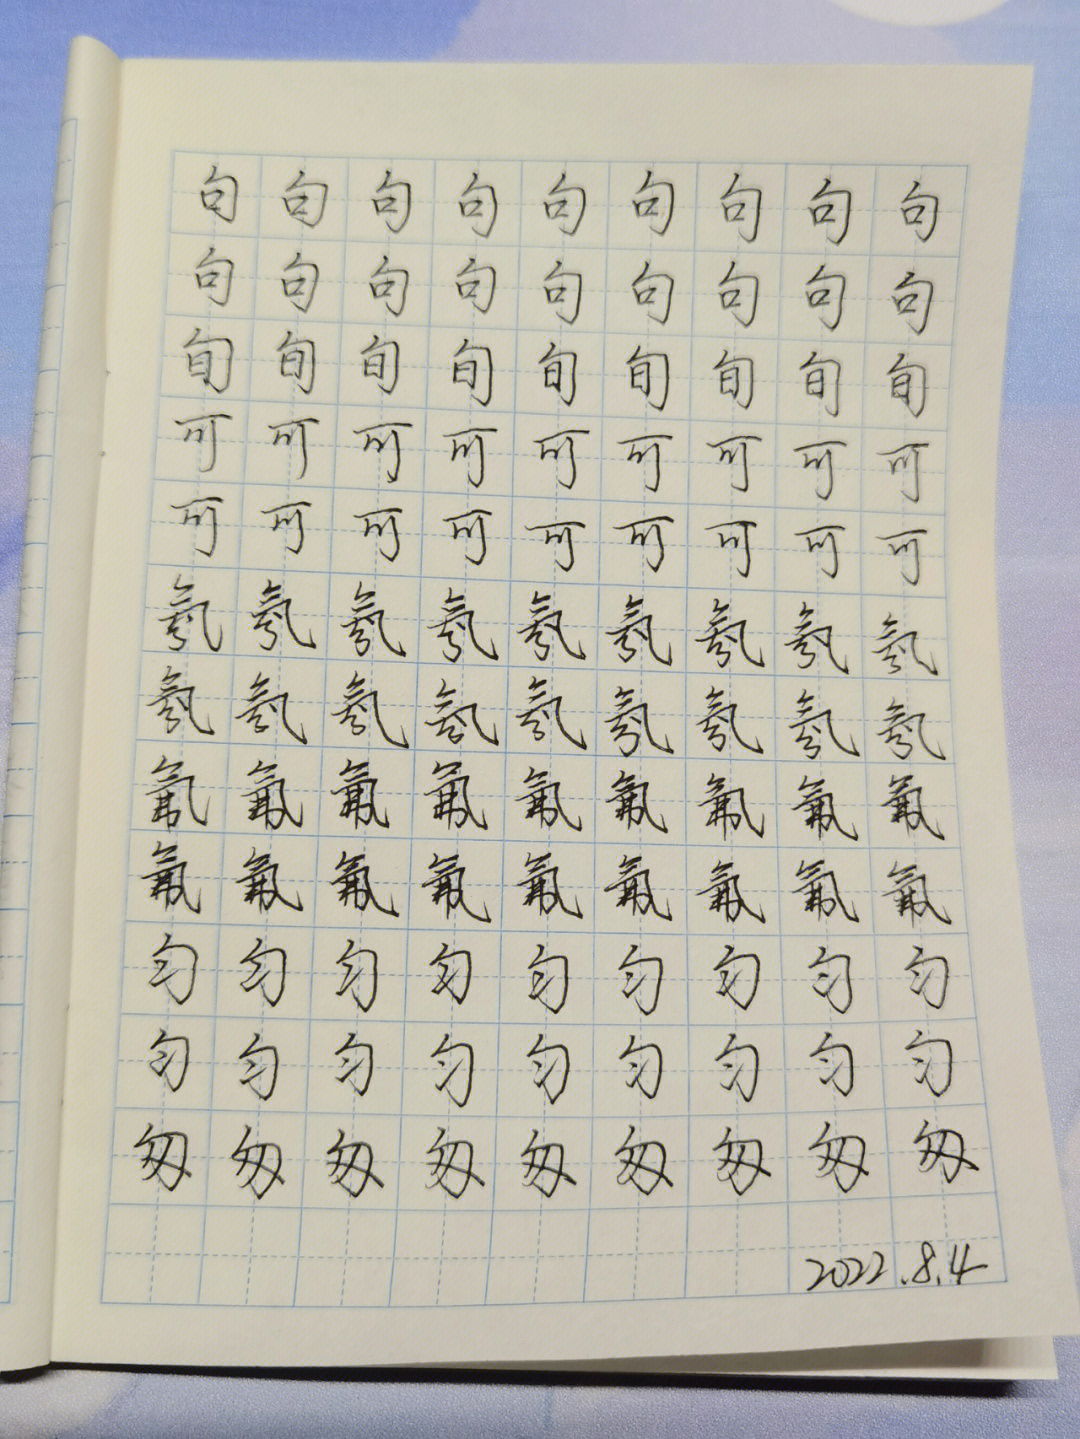 句句句句句句句句句
句句句句句句句句句
旬旬旬旬旬旬旬旬旬
可可可可可可可可可
可可可可可可可可可
氖氖氖氖氖氖氖氖氖
氖氖氖氖氖氖氖氖氖
氟氟氟氟氟氟氟氟氟
氟氟氟氟氟氟氟氟氟
匀匀匀匀匀匀匀匀匀
匀匀匀匀匀匀匀匀匀
匆匆匆匆匆匆匆匆匆
2022.8.4